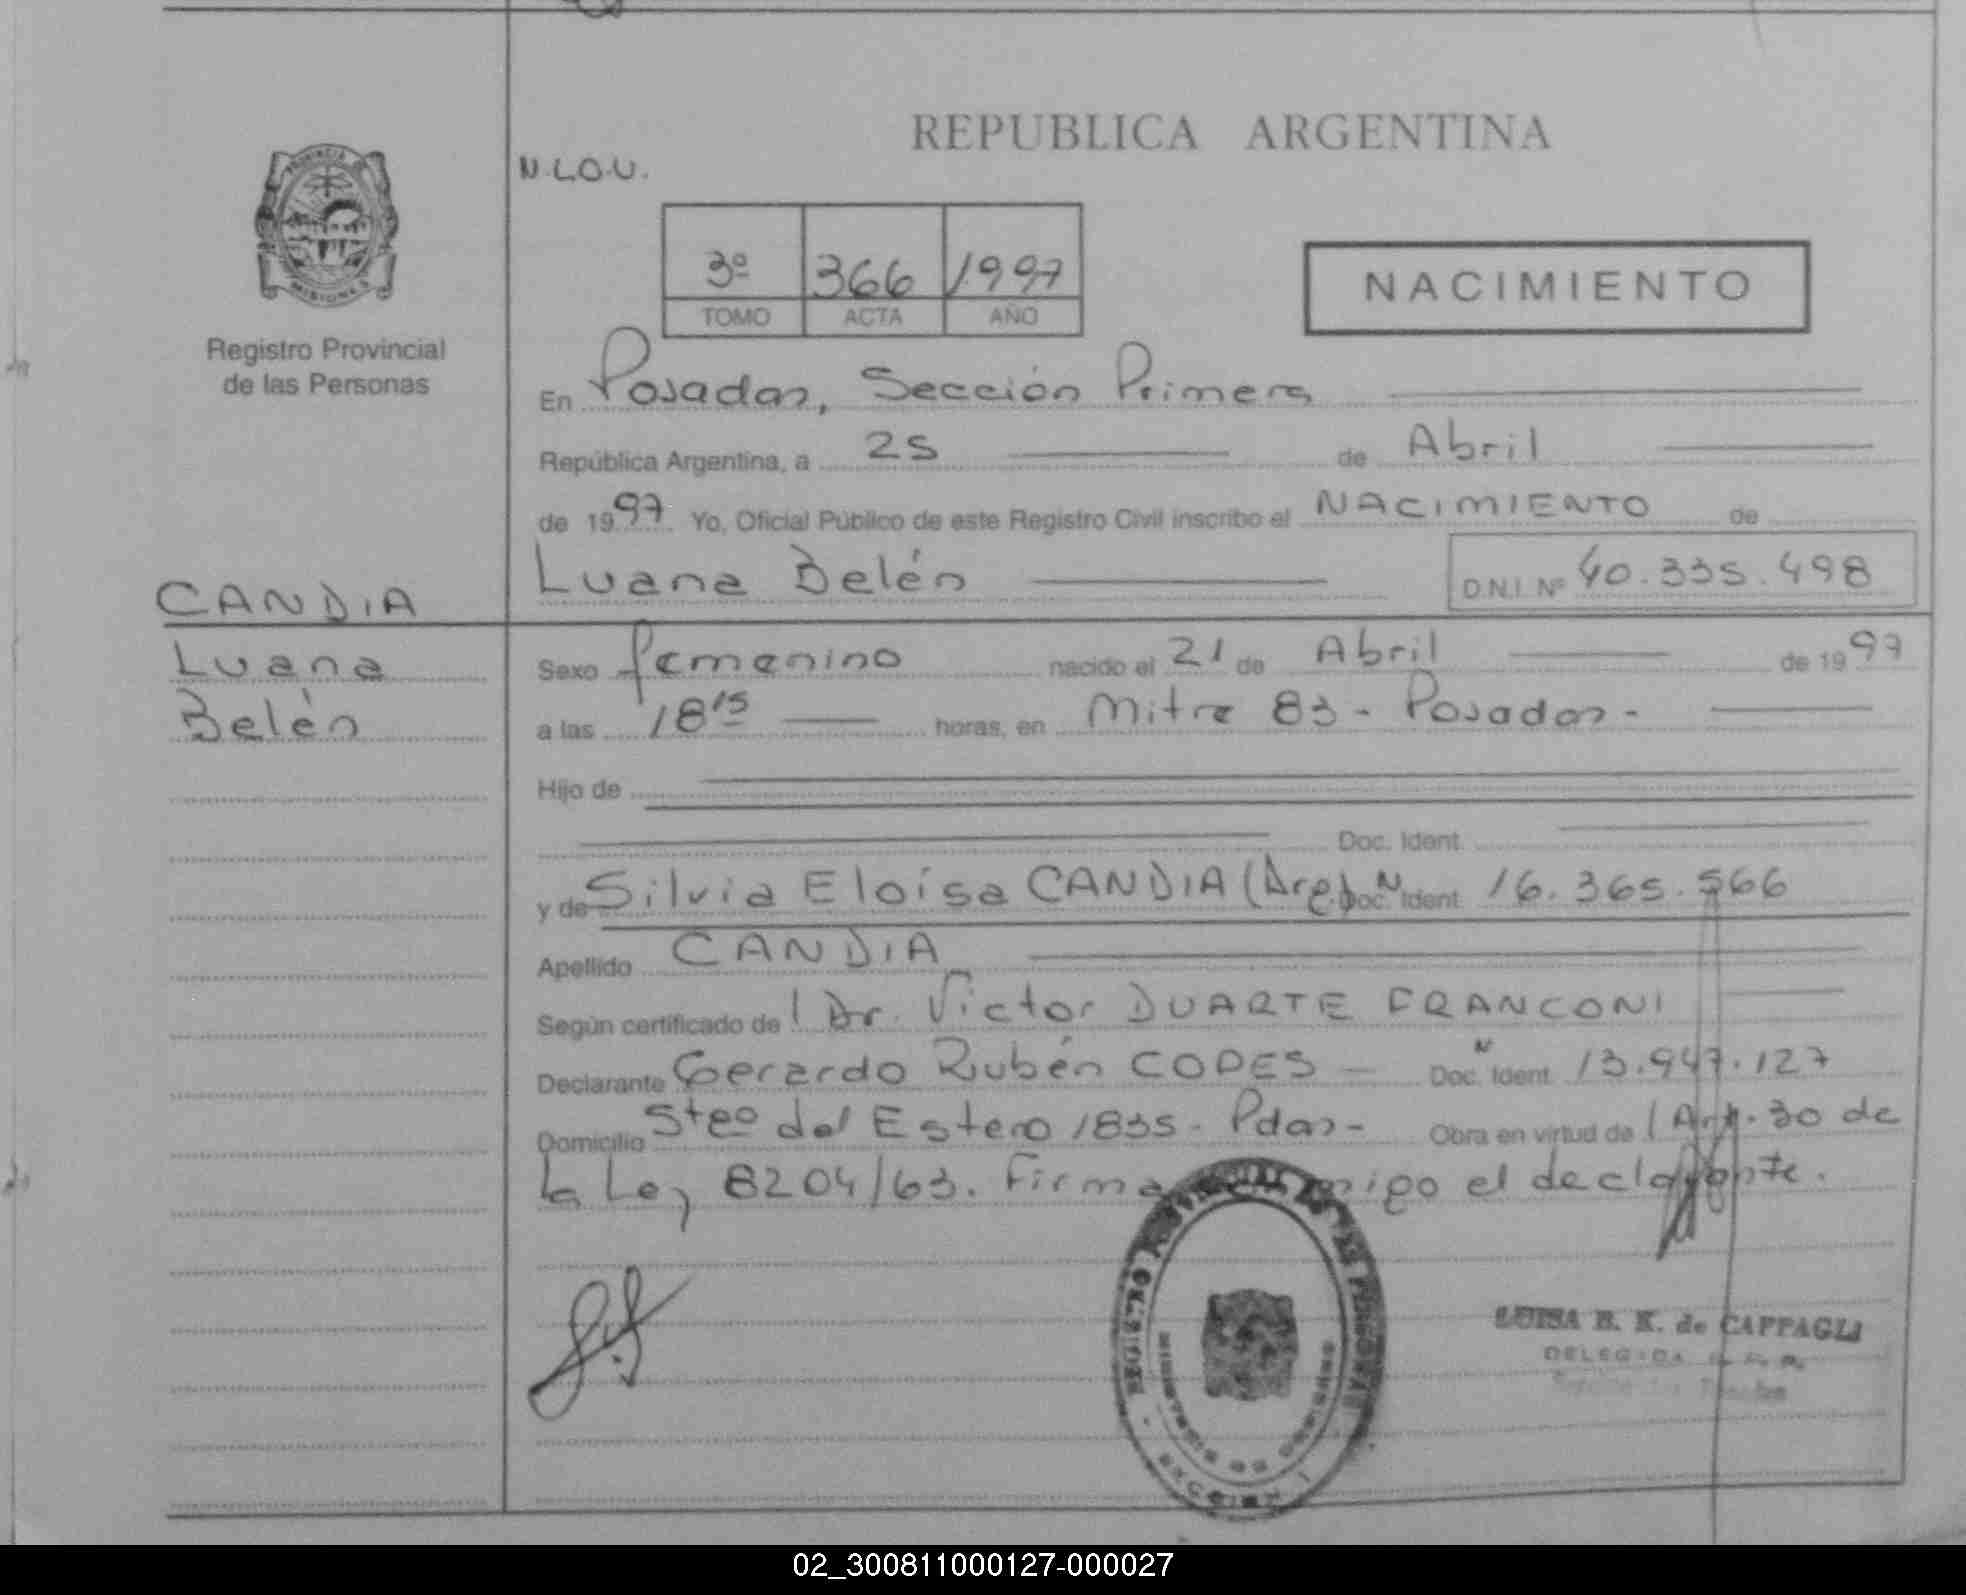 REPUBLICA ARGENTINA
N.L.O.U.
PROVINCIA DE
MISIONES
Registro Provincial
de las Personas
3º 366 1997
TOMO ACTA AÑO
NACIMIENTO
En Posadas, Sección Primera
República Argentina, a 25 de Abril
de 1997 Yo, Oficial Público de este Registro Civil inscribo el NACIMIENTO de
Luana Belén D.N.I. Nº 40.335.498
CANDIA
Luana
Belén
Sexo femenino nacido el 21 de Abril de 1997
a las 18 15 horas, en Mitre 83 - Posadas -
Hijo de
Doc. Ident.
y de Silvia Eloísa CANDIA (Arg.) Doc. N Ident. 16.365.566
Apellido CANDIA
Según certificado de l Dr. Victor DUARTE FRANCONI
Declarante Gerardo Rubén CODES - Doc. N Ident. 13.947.127
Domicilio Stgo del Estero 1835 - Pdas - Obra en virtud de l Art. 30 de
la Ley 8204/63. Firma conmigo el declarante.
LUISA E. K. de CAPPAGLI
DELEGADA
02_300811000127-000027